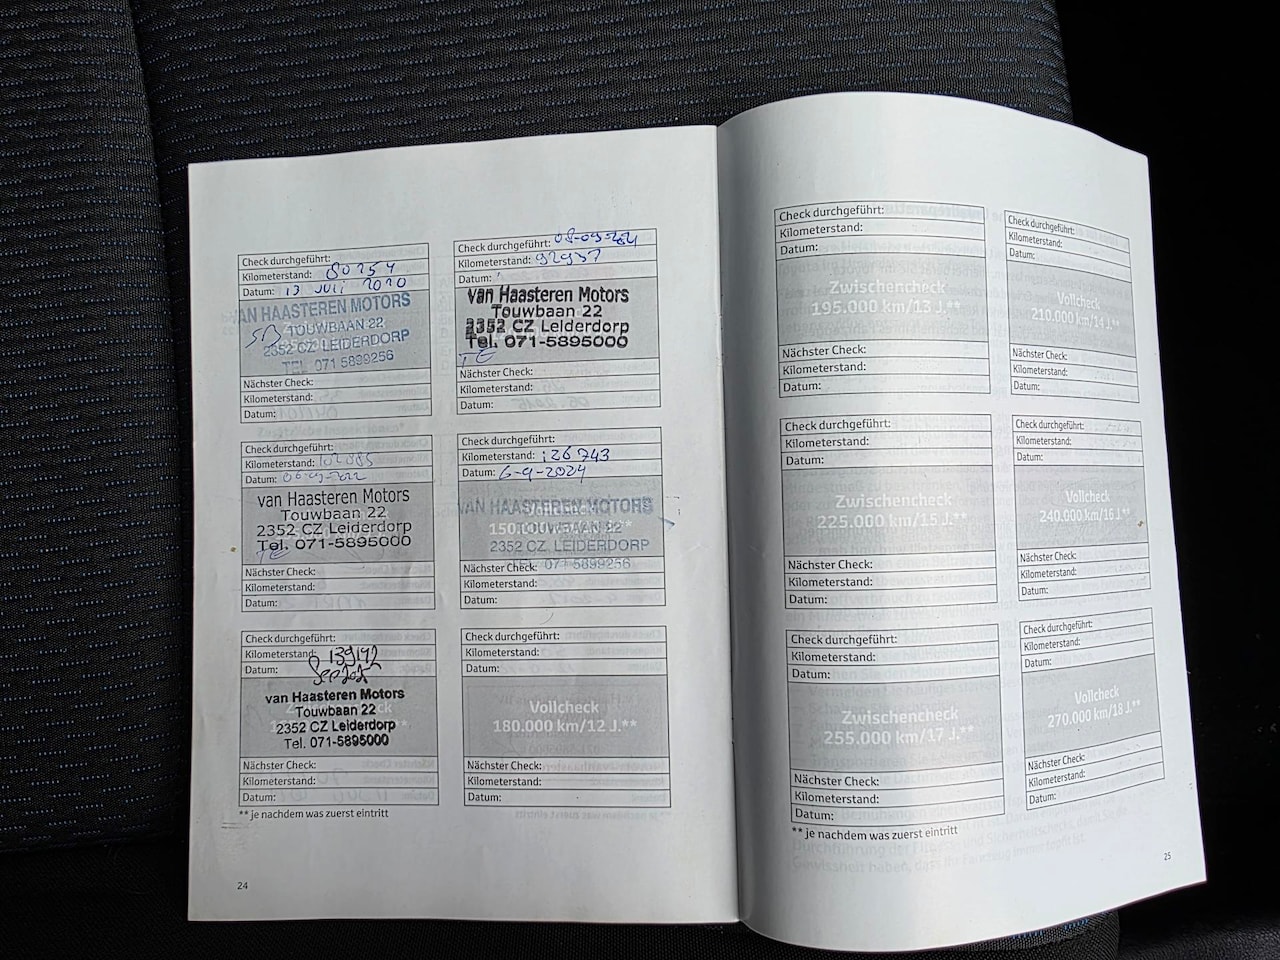 Check durchgeführt:
Kilometerstand: 80254
Datum: 13 Juli 2020
VAN HAASTEREN MOTORS
TOUWBAAN 22
2352 CZ LEIDERDORP
TEL. 071 5899256
Nächster Check:
Kilometerstand:
Datum:
Check durchgeführt:
Kilometerstand: 92957
Datum:
van Haasteren Motors
Touwbaan 22
2352 CZ Leiderdorp
Tel. 071-5895000
Nächster Check:
Kilometerstand:
Datum:
Check durchgeführt:
Kilometerstand:
Datum:
van Haasteren Motors
Touwbaan 22
2352 CZ Leiderdorp
Tel. 071-5895000
Nächster Check:
Kilometerstand:
Datum:
Check durchgeführt:
Kilometerstand: 126743
Datum: 6-9-2024
VAN HAASTEREN MOTORS
TOUWBAAN 22
2352 CZ LEIDERDORP
TEL. 071 5899256
Nächster Check:
Kilometerstand:
Datum:
Check durchgeführt:
Kilometerstand: 139142
Datum:
van Haasteren Motors
Touwbaan 22
2352 CZ Leiderdorp
Tel. 071-5895000
Nächster Check:
Kilometerstand:
Datum:
Check durchgeführt:
Kilometerstand:
Datum:
Vollcheck
180.000 km/12 J.**
Nächster Check:
Kilometerstand:
Datum:
** je nachdem was zuerst eintritt
24
Check durchgeführt:
Kilometerstand:
Datum:
Zwischencheck
195.000 km/13 J.**
Nächster Check:
Kilometerstand:
Datum:
Check durchgeführt:
Kilometerstand:
Datum:
Vollcheck
210.000 km/14 J.**
Nächster Check:
Kilometerstand:
Datum:
Check durchgeführt:
Kilometerstand:
Datum:
Zwischencheck
225.000 km/15 J.**
Nächster Check:
Kilometerstand:
Datum:
Check durchgeführt:
Kilometerstand:
Datum:
Vollcheck
240.000 km/16 J.**
Nächster Check:
Kilometerstand:
Datum:
Check durchgeführt:
Kilometerstand:
Datum:
Zwischencheck
255.000 km/17 J.**
Nächster Check:
Kilometerstand:
Datum:
Check durchgeführt:
Kilometerstand:
Datum:
Vollcheck
270.000 km/18 J.**
Nächster Check:
Kilometerstand:
Datum:
** je nachdem was zuerst eintritt
25